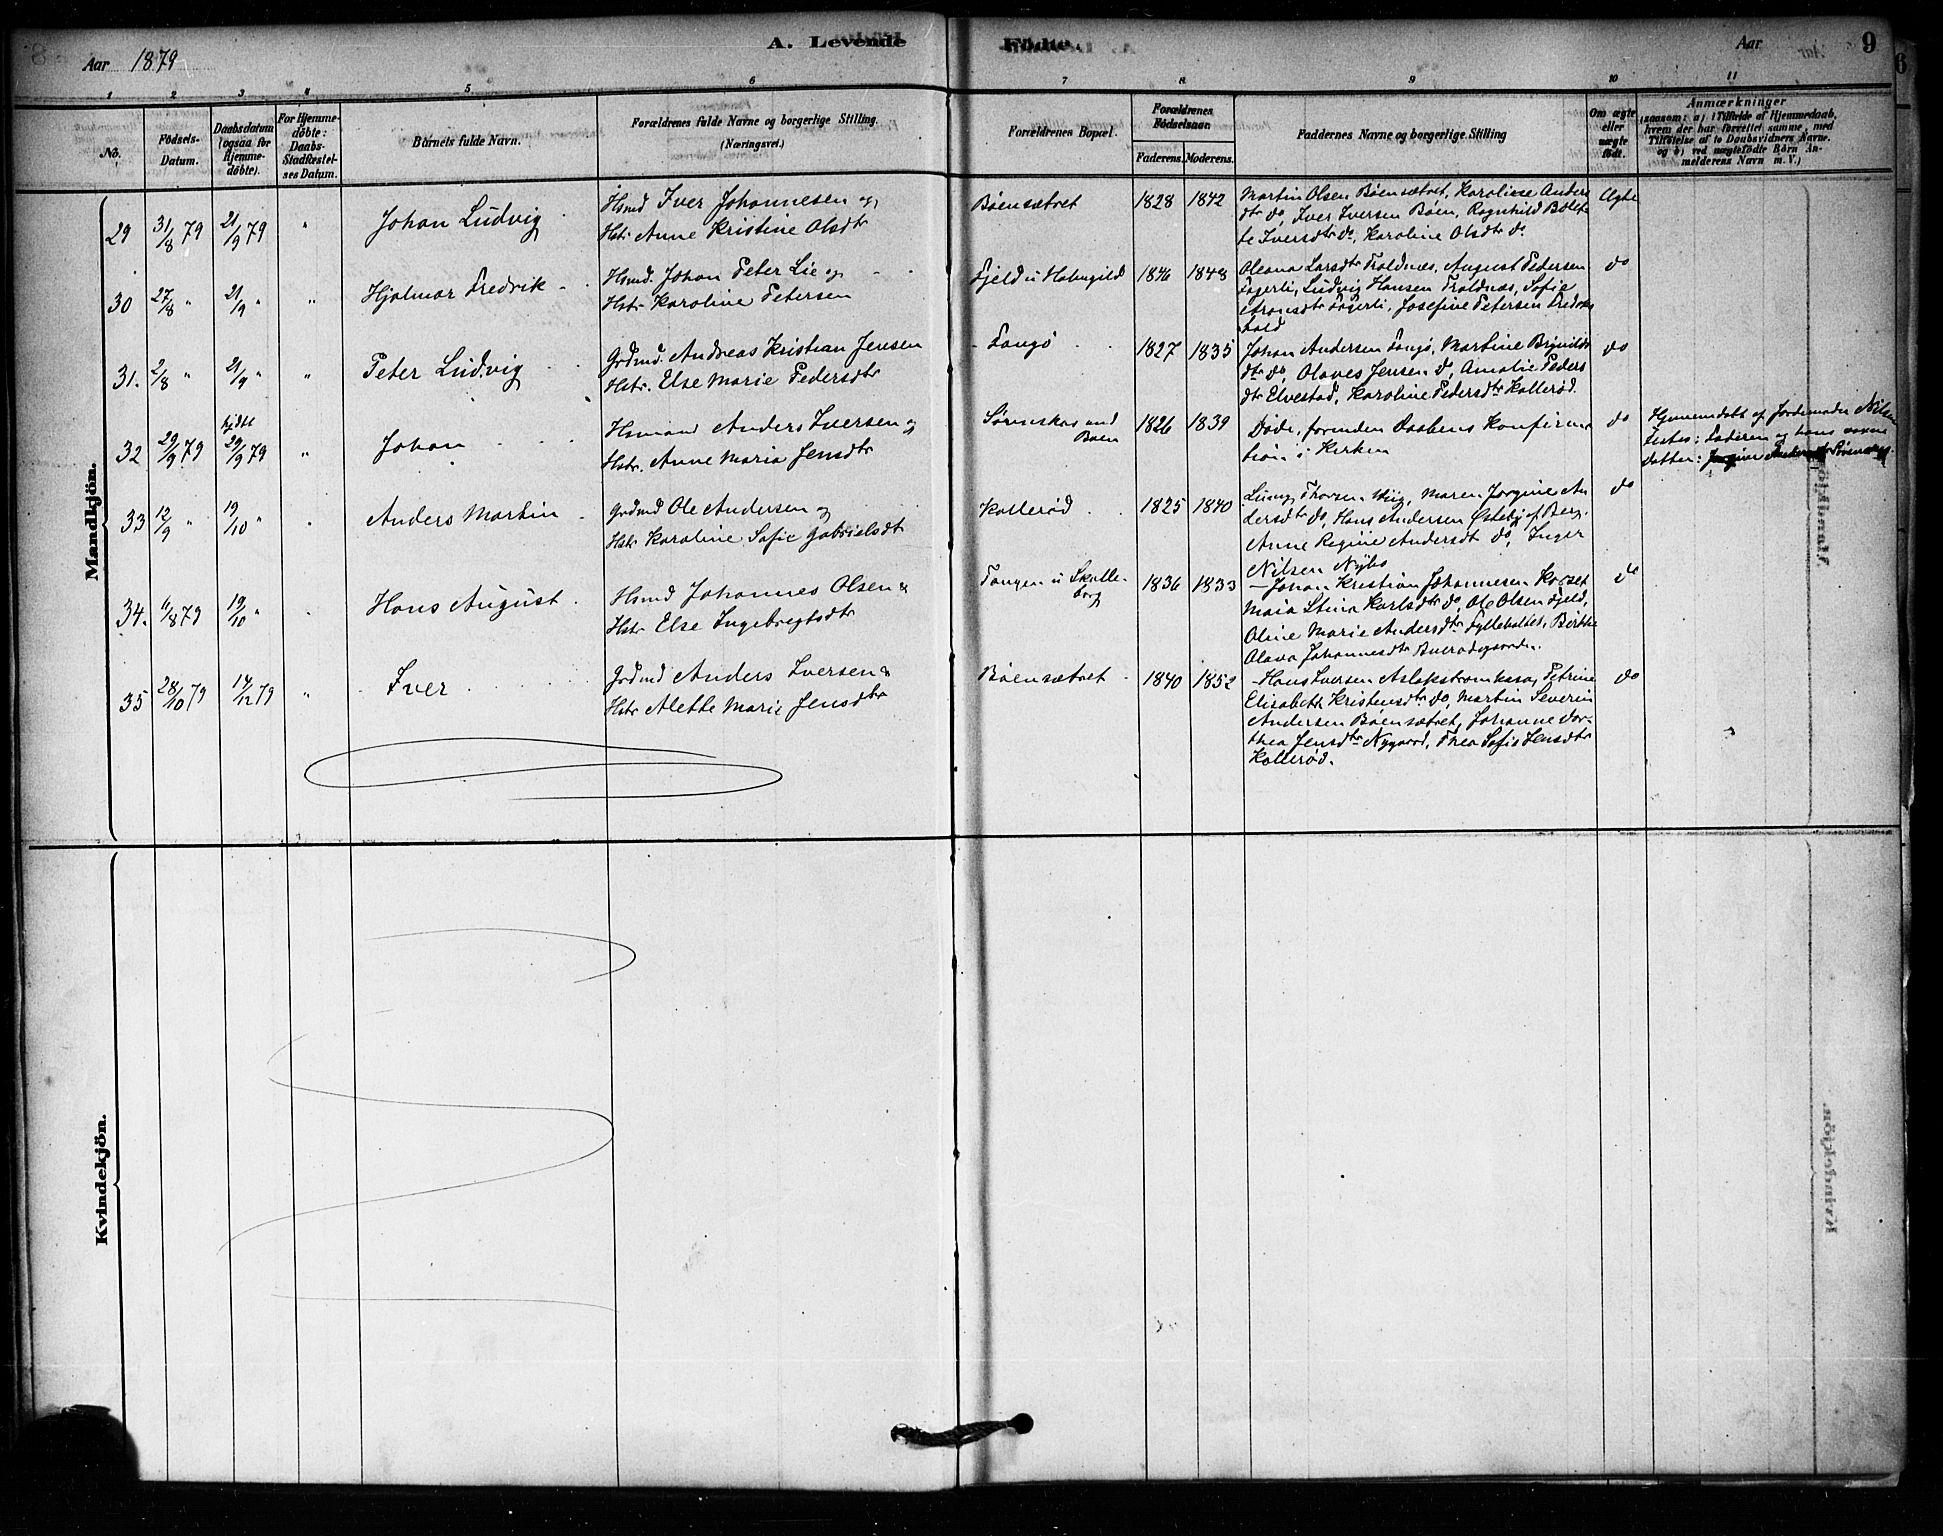 Aar 1879
A. Levende Födte.
Aar
9
1 2 3 4 5 6 7 8 9 10 11
No.
Födsels-
Datum.
Daabsdatum
(ogsaa for
Hjemme-
döbte).
For Hjemme-
döbte:
Daabs-
Stadfæstel-
ses Datum.
Barnets fulde Navn.
Forældrenes fulde Navne og borgerlige Stilling.
(Næringsvei.)
Forældrenes Bopæl.
Forældrenes
Födselsaar
Faderens. Moderens.
Faddernes Navne og borgerlige Stilling
Om ægte
eller
uægte
födt.
Anmærkninger
(saasom: a) i Tilfælde af Hjemmedaab,
hvem der har forrettet samme, med
Tilföielse af to Daabsvidners Navne.
og b) ved uægtefödte Börn An-
melderens Navn m. V.)
Mandkjön.
29 31/8 79 21/9 79 " Johan Ludvig
Hsmd Iver Johannesen og
Hstr Anne Kristine Olsdtr
Böensætret 1828 1842
Martin Olsen Böensætret, Karolisse Anders
dtr do, Iver Iversen Böen, Ragnhild Bolet
te Iversdtr do, Karoline Olsdtr do
Ægte
30 27/8 " 21/9 " " Hjalmar Fredrik
Hsmd. Johan Peter Lie og
Hstr Karoline Petersen
Fjeld u 1846 1848
Oleana Larsdtr Troldnæs, August Pedersen
Fagerli, Ludvig Hansen Troldnæs, Sofie
Aronsdtr Fagerli, Josefine Petersen Fredriks
hald
do
31. 2/8 " 21/9 " " Peter Ludvig
Grdmd. Andreas Kristian Jensen
Hstr. Else Marie Pedersdtr
Langö 1827 1835
Johan Andersen Langö, Martine Brynilds
dtr do, Olaves Jensen do, Amalie Peders
dtr Elvestad, Karoline Pedersdtr Kolleröd.
do
32 29/9 79 hjdbt 29/9 79 " Johan
Hsmand Anders Iversen og
Hstr. Anne Maria Jensdtr
und
Böen
1826 1839
Döde, forinden Daabens Konfirma
tion i Kirken
do
Hjemmedöbt af Jordemoder Nilsen
Testes: Faderen og hans voxne
Datter:
33 12/9 " 19/10 " Anders Martin
Grdmd Ole Andersen og
Hstr Karoline Sofie Gabrielsdt
Kollerød 1825 1840
Thorsen Wiig, Maren Jorgine An
dersdtr do, Hans Andersen Østeby af Berg,
Anne Regine Andersdt do, Inger
Nilsen Nybo
do
34. 11/8 79 19/10 " Hans August
Hsmd Johannes Olsen &
Hstr Else Ingebregtsdtr
Tangen u Skolle-
borg
1836 1833
Johan Kristian Johannesen Korset
Maia Stina Karlsdtr do, Ole Olsen Fjeld,
Oline Marie Andersdtr Fylleholtet, Birthe
Olava Johannesdtr
do
35 28/10 79 14/12 79 " Iver
Grdmd Anders Iversen &
Hstr Alette Marie Jensdtr
Böensætret 1840 1852
Hans Iversen Aslakstrømkasa, Petrine
Elisabeth Kristensdtr do, Martin Severin
Andersen Böensætret, Johanne Dor-
thea Jensdtr Nygaard, Thea Sofie Jensdtr
Kollerød.
do
Kvindekjön.